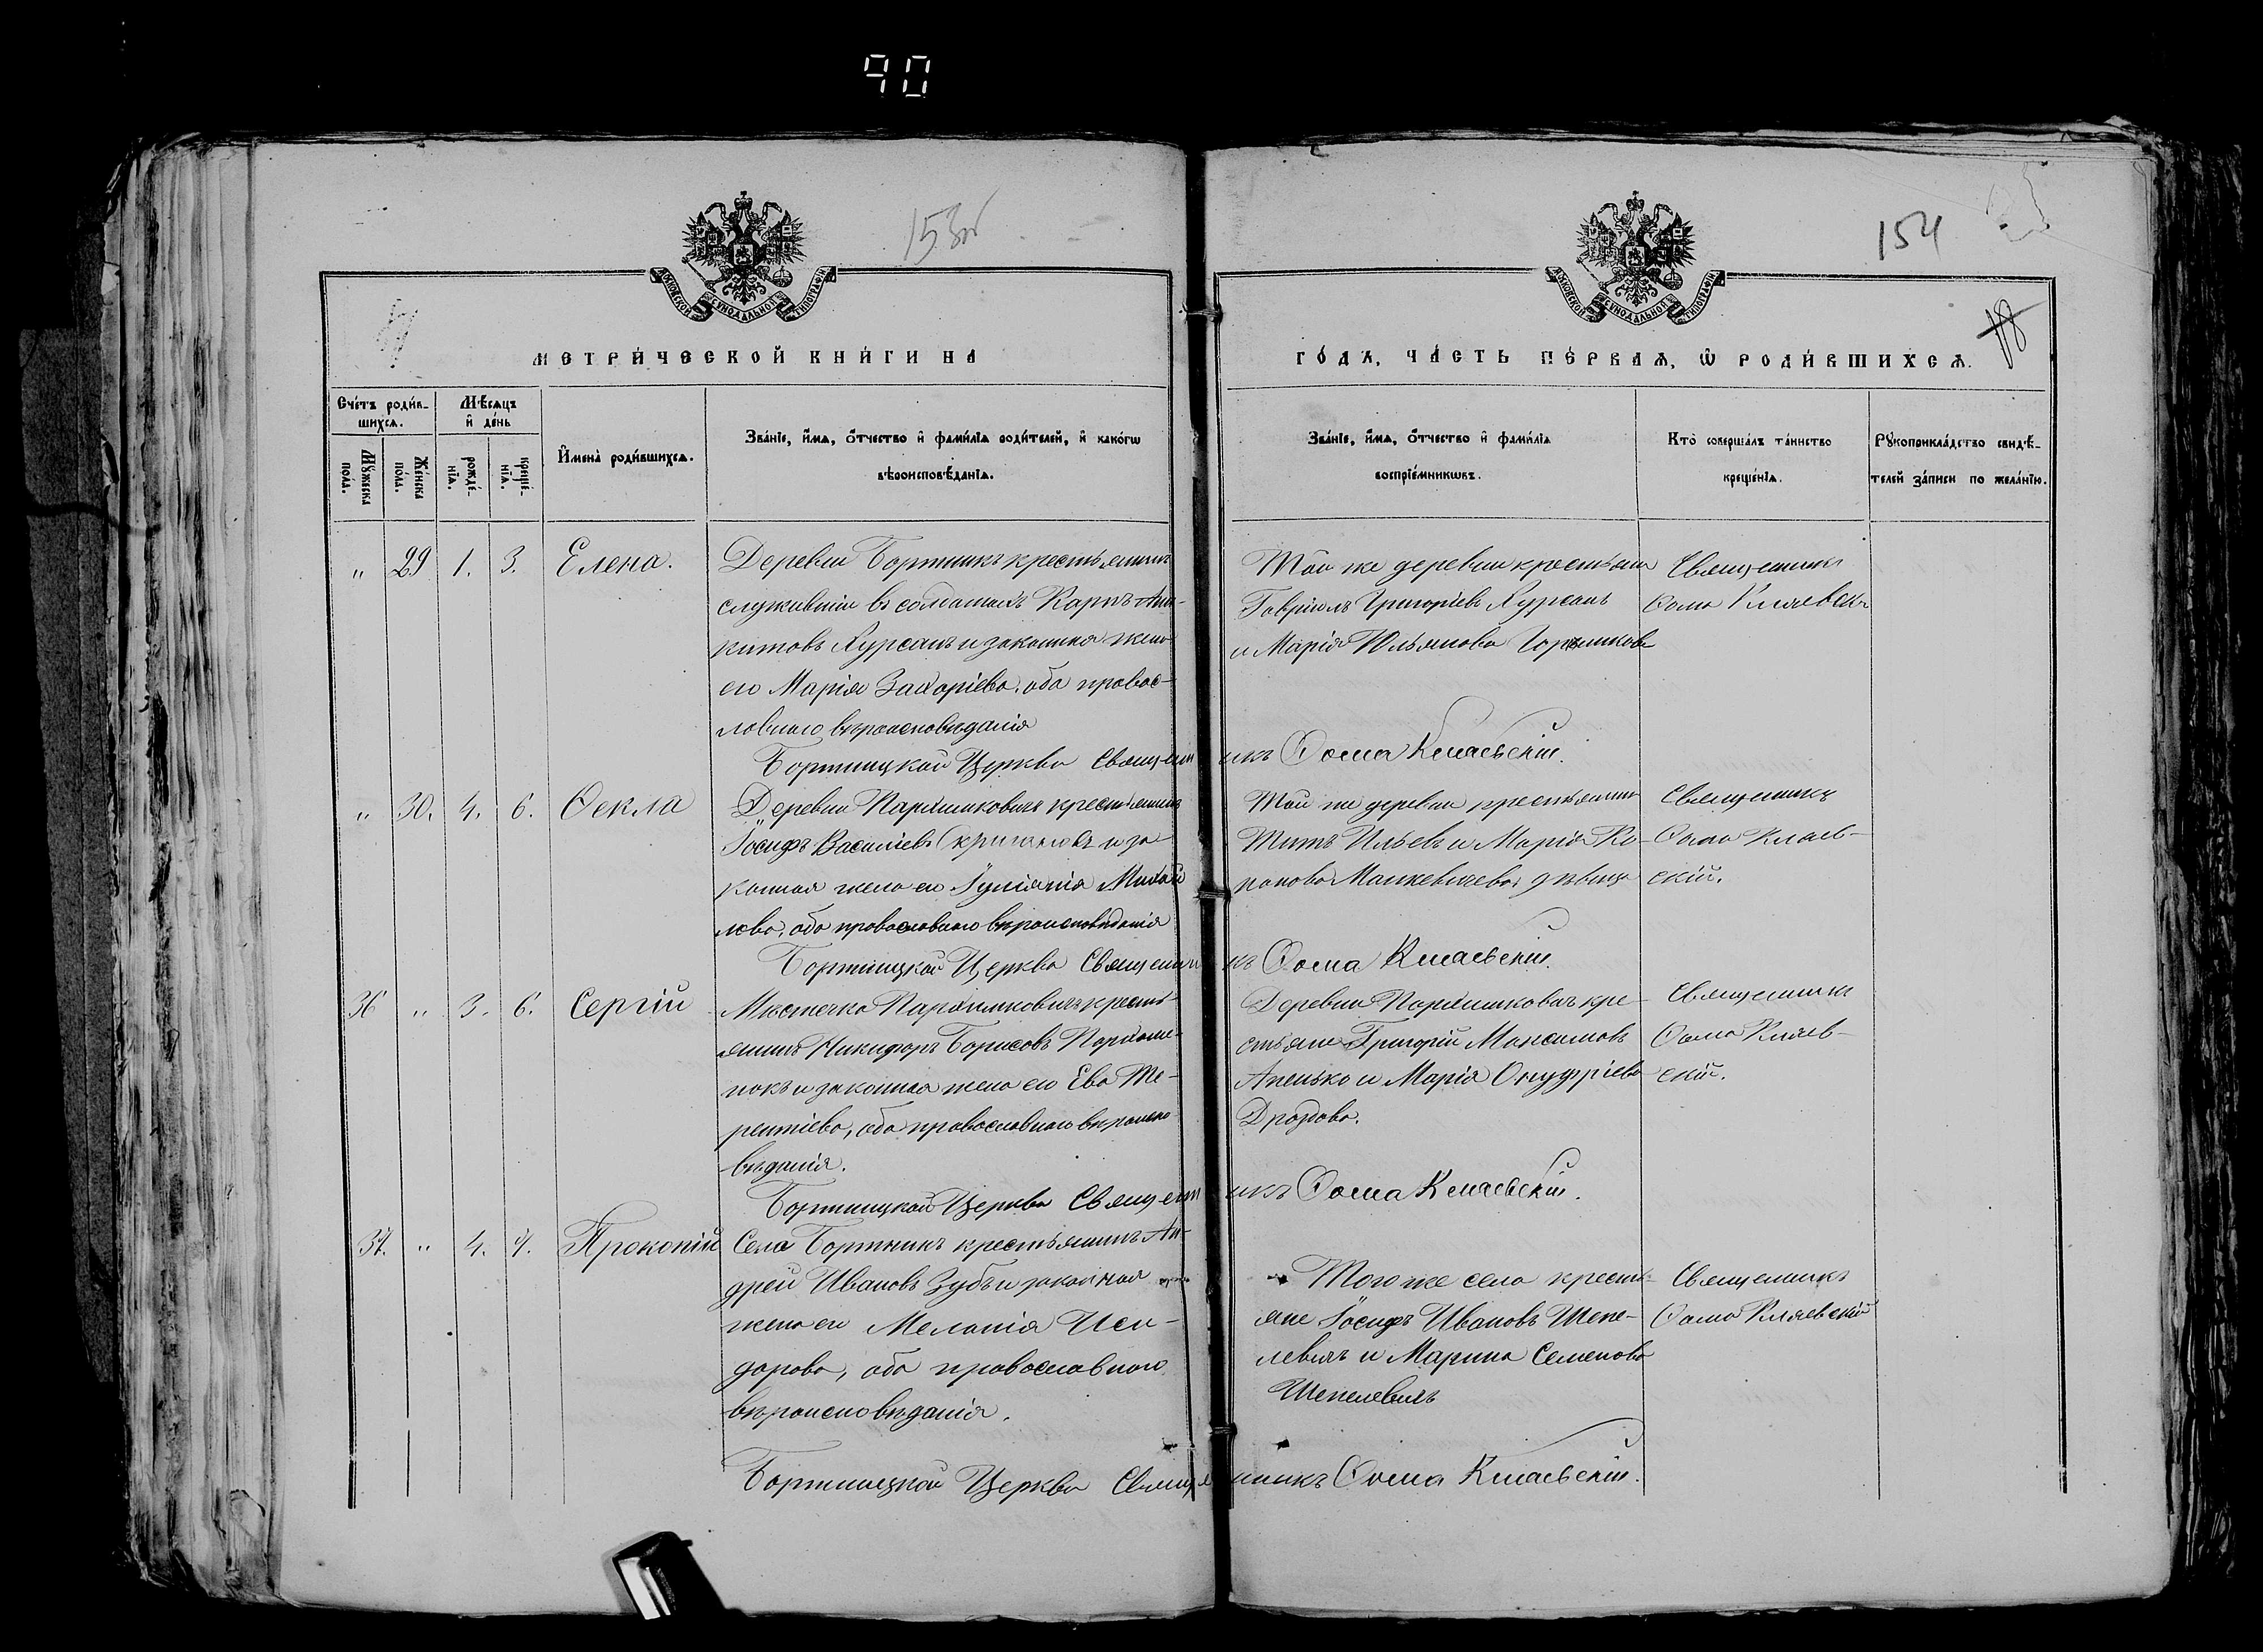 90
153об
154
18
МОСКОВСКОЙ СѴНОДАЛЬНОЙ ТИПОГРАФІИ
МОСКОВСКОЙ СѴНОДАЛЬНОЙ ТИПОГРАФІИ
МЕТРИ́ЧЕСКОЙ КНИ́ГИ НА
ГО́ДЪ, ЧА́СТЬ ПЕ́РВАѦ, Ѿ РОДИ́ВШИХСѦ.
Сче́тъ роди́в-
шихсѧ.
Мѣ́сѧцъ
и҆ де́нь
Мꙋ́жеска
по́ла.
Же́нска
по́ла.
рожде́-
нїѧ.
креще́-
нїѧ.
И҆мена̀ роди́вшихсѧ.
Зва́нїе, и҆́мѧ, ѻ҆́тчество и҆ фами́лїѧ роди́телей, и҆ како́гѡ
вѣроисповѣ́данїѧ.
Зва́нїе, и҆́мѧ, ѻ҆́тчество и҆ фами́лїѧ
воспрїе́мникѡвъ.
Кто̀ соверша́лъ та́инство
креще́нїѧ.
Рꙋкоприкла́дство свидѣ́-
телей за́писи по жела́нїю.
" 29 1. 3. Елена.
Деревни Бортникъ крестьянинъ
служившій въ солдатахъ Карпъ Ани-
китовъ Хурсанъ и законная жена
его Марія Захаріева, оба правос-
лавнаго вѣроисповѣданія
Той же деревни крестьяне
Гавріилъ Григоріевъ Хурсанъ
и Марія Юльянова
Священникъ
Ѳома Кляевскі
Бортницкой Церкви Священникъ Ѳома Кляевскій.
" 30. 4. 6. Ѳекла
Деревни Пархимковичъ крестьянинъ
Іосифъ Василіевъ и за-
конная жена его Іуліанія Михай
лова, оба православнаго вѣроисповѣданія
Той же деревни крестьянинъ
Титъ Ильевъ и Марія Ко-
нонова Манкевичева, дѣвица
Священникъ
Ѳома Кляев-
скій.
Бортницкой Церкви Священникъ Ѳома Кляевскій.
36 " 3. 6. Сергій
Мѣстечка Пархимковичъ кресть-
янинъ Никифоръ Борисовъ Пархоме-
нокъ и законная жена его Ева Те-
рентіева, оба православнаго вѣроиспо-
вѣданія.
Деревни Пархимковичъ кре-
стьяне Григорій Максимовъ
Апенько и Марія Онуфріева
Дроздова.
Священникъ
Ѳома Кляев-
скій.
Бортницкой Церкви Священникъ Ѳома Кляевскій.
37. " 4. 7. Прокопій
Села Бортникъ крестьянинъ Ан-
дрей Ивановъ Зубъ и законная
жена его Меланія Иси-
дорова, оба православнаго
вѣроисповѣданія.
Того же села кресть-
яне Іосифъ Ивановъ Шепе-
левичъ и Марина Семенова
Шепелевичъ
Священникъ
Ѳома Кляевскій
Бортницкой Церкви Священникъ Ѳома Кляевскій.